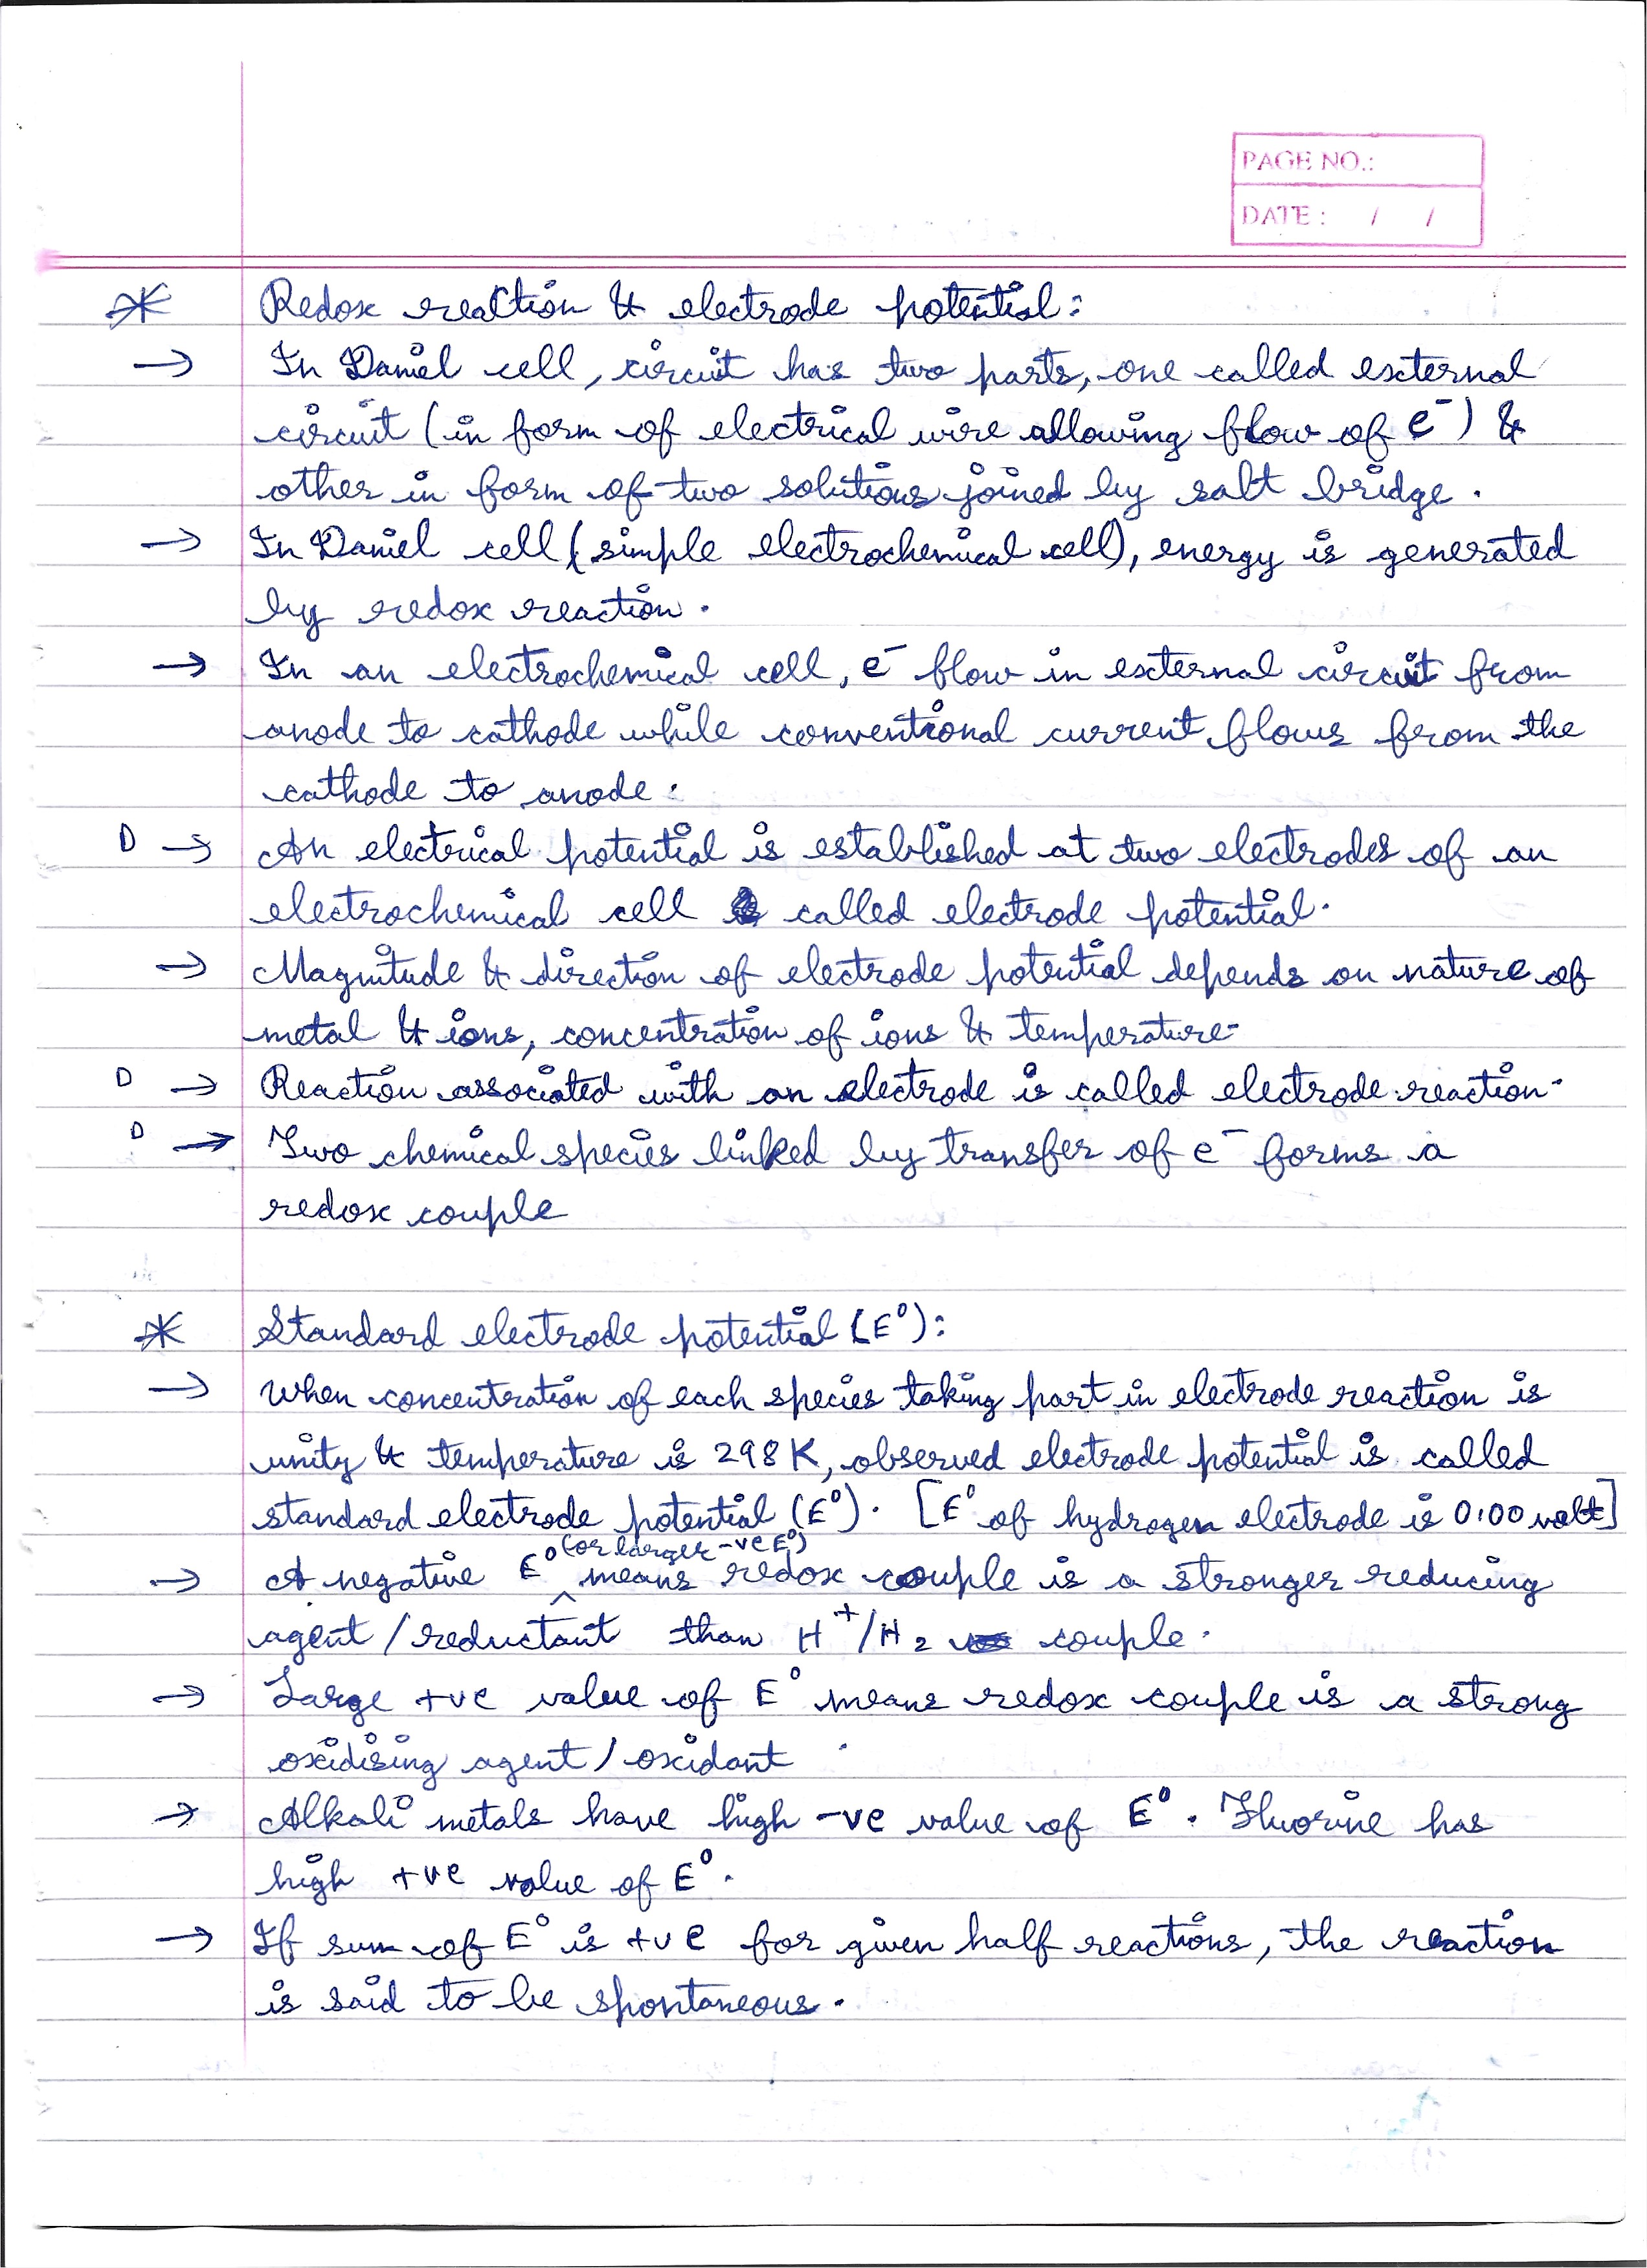 PAGE NO.:
DATE : / /
* Redox reaction & electrode potential:
→ In Daniel cell, circuit has two parts, one called external
circuit (in form of electrical wire allowing flow of e⁻) &
other in form of two solutions joined by salt bridge.
→ In Daniel cell (simple electrochemical cell), energy is generated
by redox reaction.
→ In an electrochemical cell, e⁻ flow in external circuit from
anode to cathode while conventional current flows from the
cathode to anode.
D → An electrical potential is established at two electrodes of an
electrochemical cell called electrode potential.
→ Magnitude & direction of electrode potential depends on nature of
metal & ions, concentration of ions & temperature.
D → Reaction associated with an electrode is called electrode reaction.
D → Two chemical species linked by transfer of e⁻ forms a
redox couple
* Standard electrode potential (E⁰):
→ When concentration of each species taking part in electrode reaction is
unity & temperature is 298 K, observed electrode potential is called
standard electrode potential (E⁰). [E⁰ of hydrogen electrode is 0.00 volt]
(or larger -ve E⁰)
→ A negative E⁰ ^ means redox couple is a stronger reducing
agent / reductant than H⁺/H₂ couple.
→ Large +ve value of E⁰ means redox couple is a strong
oxidising agent / oxidant
→ Alkali metals have high -ve value of E⁰. Fluorine has
high +ve value of E⁰.
→ If sum of E⁰ is +ve for given half reactions, the reaction
is said to be spontaneous.